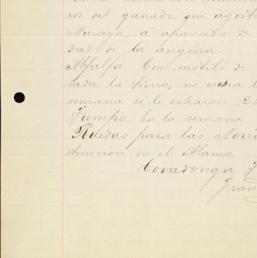 ros del ganado que agost
Muraga, a aparecido de
dad de la angina
Alfalfa. Con motibo de
bada la tierra, no
semana se le echaron
Tiempo. En la semana
Ruedas para las Nori
Atencion en el Alamo.
Covadonga J
Fran